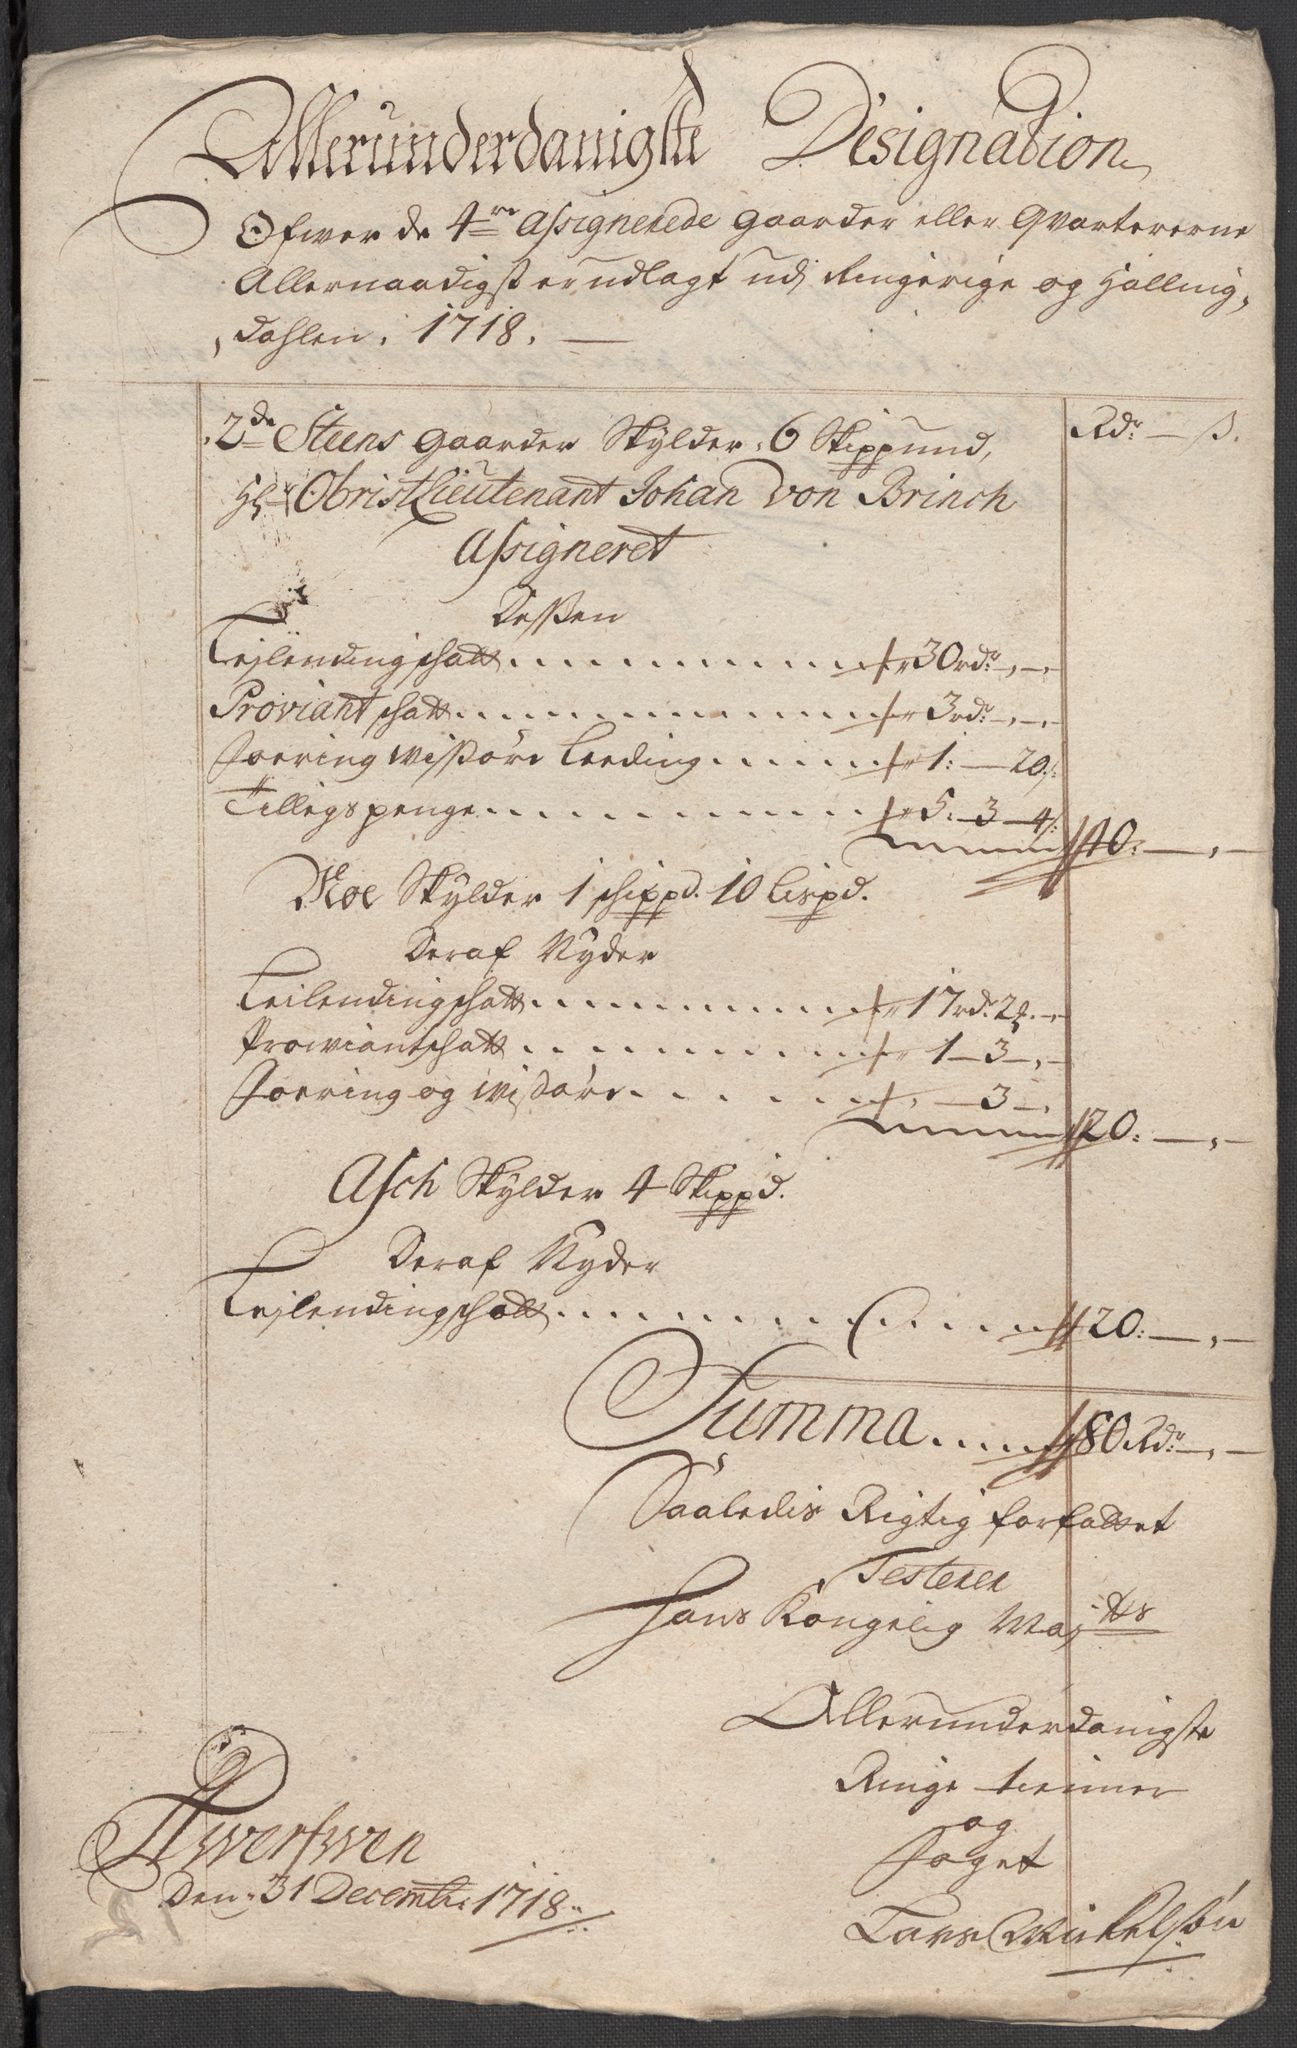 Allerunderdanigste Designation
Ofwer de 4re Assignerede gaarder eller Qvartererne
Allernaadigst er udlagt udj Ringerige og Halling,
,dahlen. 1718. —
2de Steens gaarder Skylder 6 Skippund, Rdr — ß.
Hr ObristLieutenant Johan von Brinch
Assigneret
Deßen
Lejlendingschatt 30 rdr - , -
Proviant schatt 3 rdr - , -
Foering wißøre Leeding 1: — 20ß:
Tillegs penge 5. 3 4ß:
40: — , —
Moe Skylder 1 schippd. 10 Lispd.
Deraf Nyder
Leilendingschatt 17 rdr. 2
Prowiantschatt 1 — 3 — , —
Foering og wißøre — 3 — ,
20: — , —
Asch Skylder 4 Skippd.
Deraf Nyder
Lejlendingschatt 20: — , —
Summa 80 Rdr — , —
Saaledis Rigtig forfattet
Testerer
Hans Kongelig Majtts
Allerunderdanigste
Ringe tienner
og
Foget
Lars Mickelsøn
Twerfwen
Den 31 Decembr: 1718